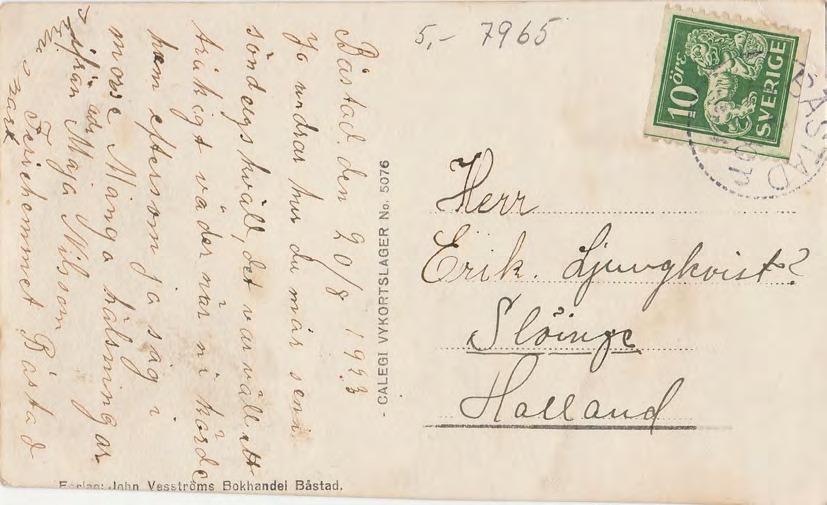 Båstad. den 20/8 1923
Ja undrar hur du mår sen i
söndagskväll, det var väll ett
tråkigt väder när ni körde
hem eftersom ja såg i
morse Många hälsningar
ifrån Maja Nilsson
Feriehemmet Båstad
- CALEGI VYKORTSLAGER No. 5076
Förlag: John Vesströms Bokhandel Båstad.
5,- 7965
10 öre
SVERIGE
BÅSTAD
Herr
Erik. Ljungkvist?
Slöinge
Halland